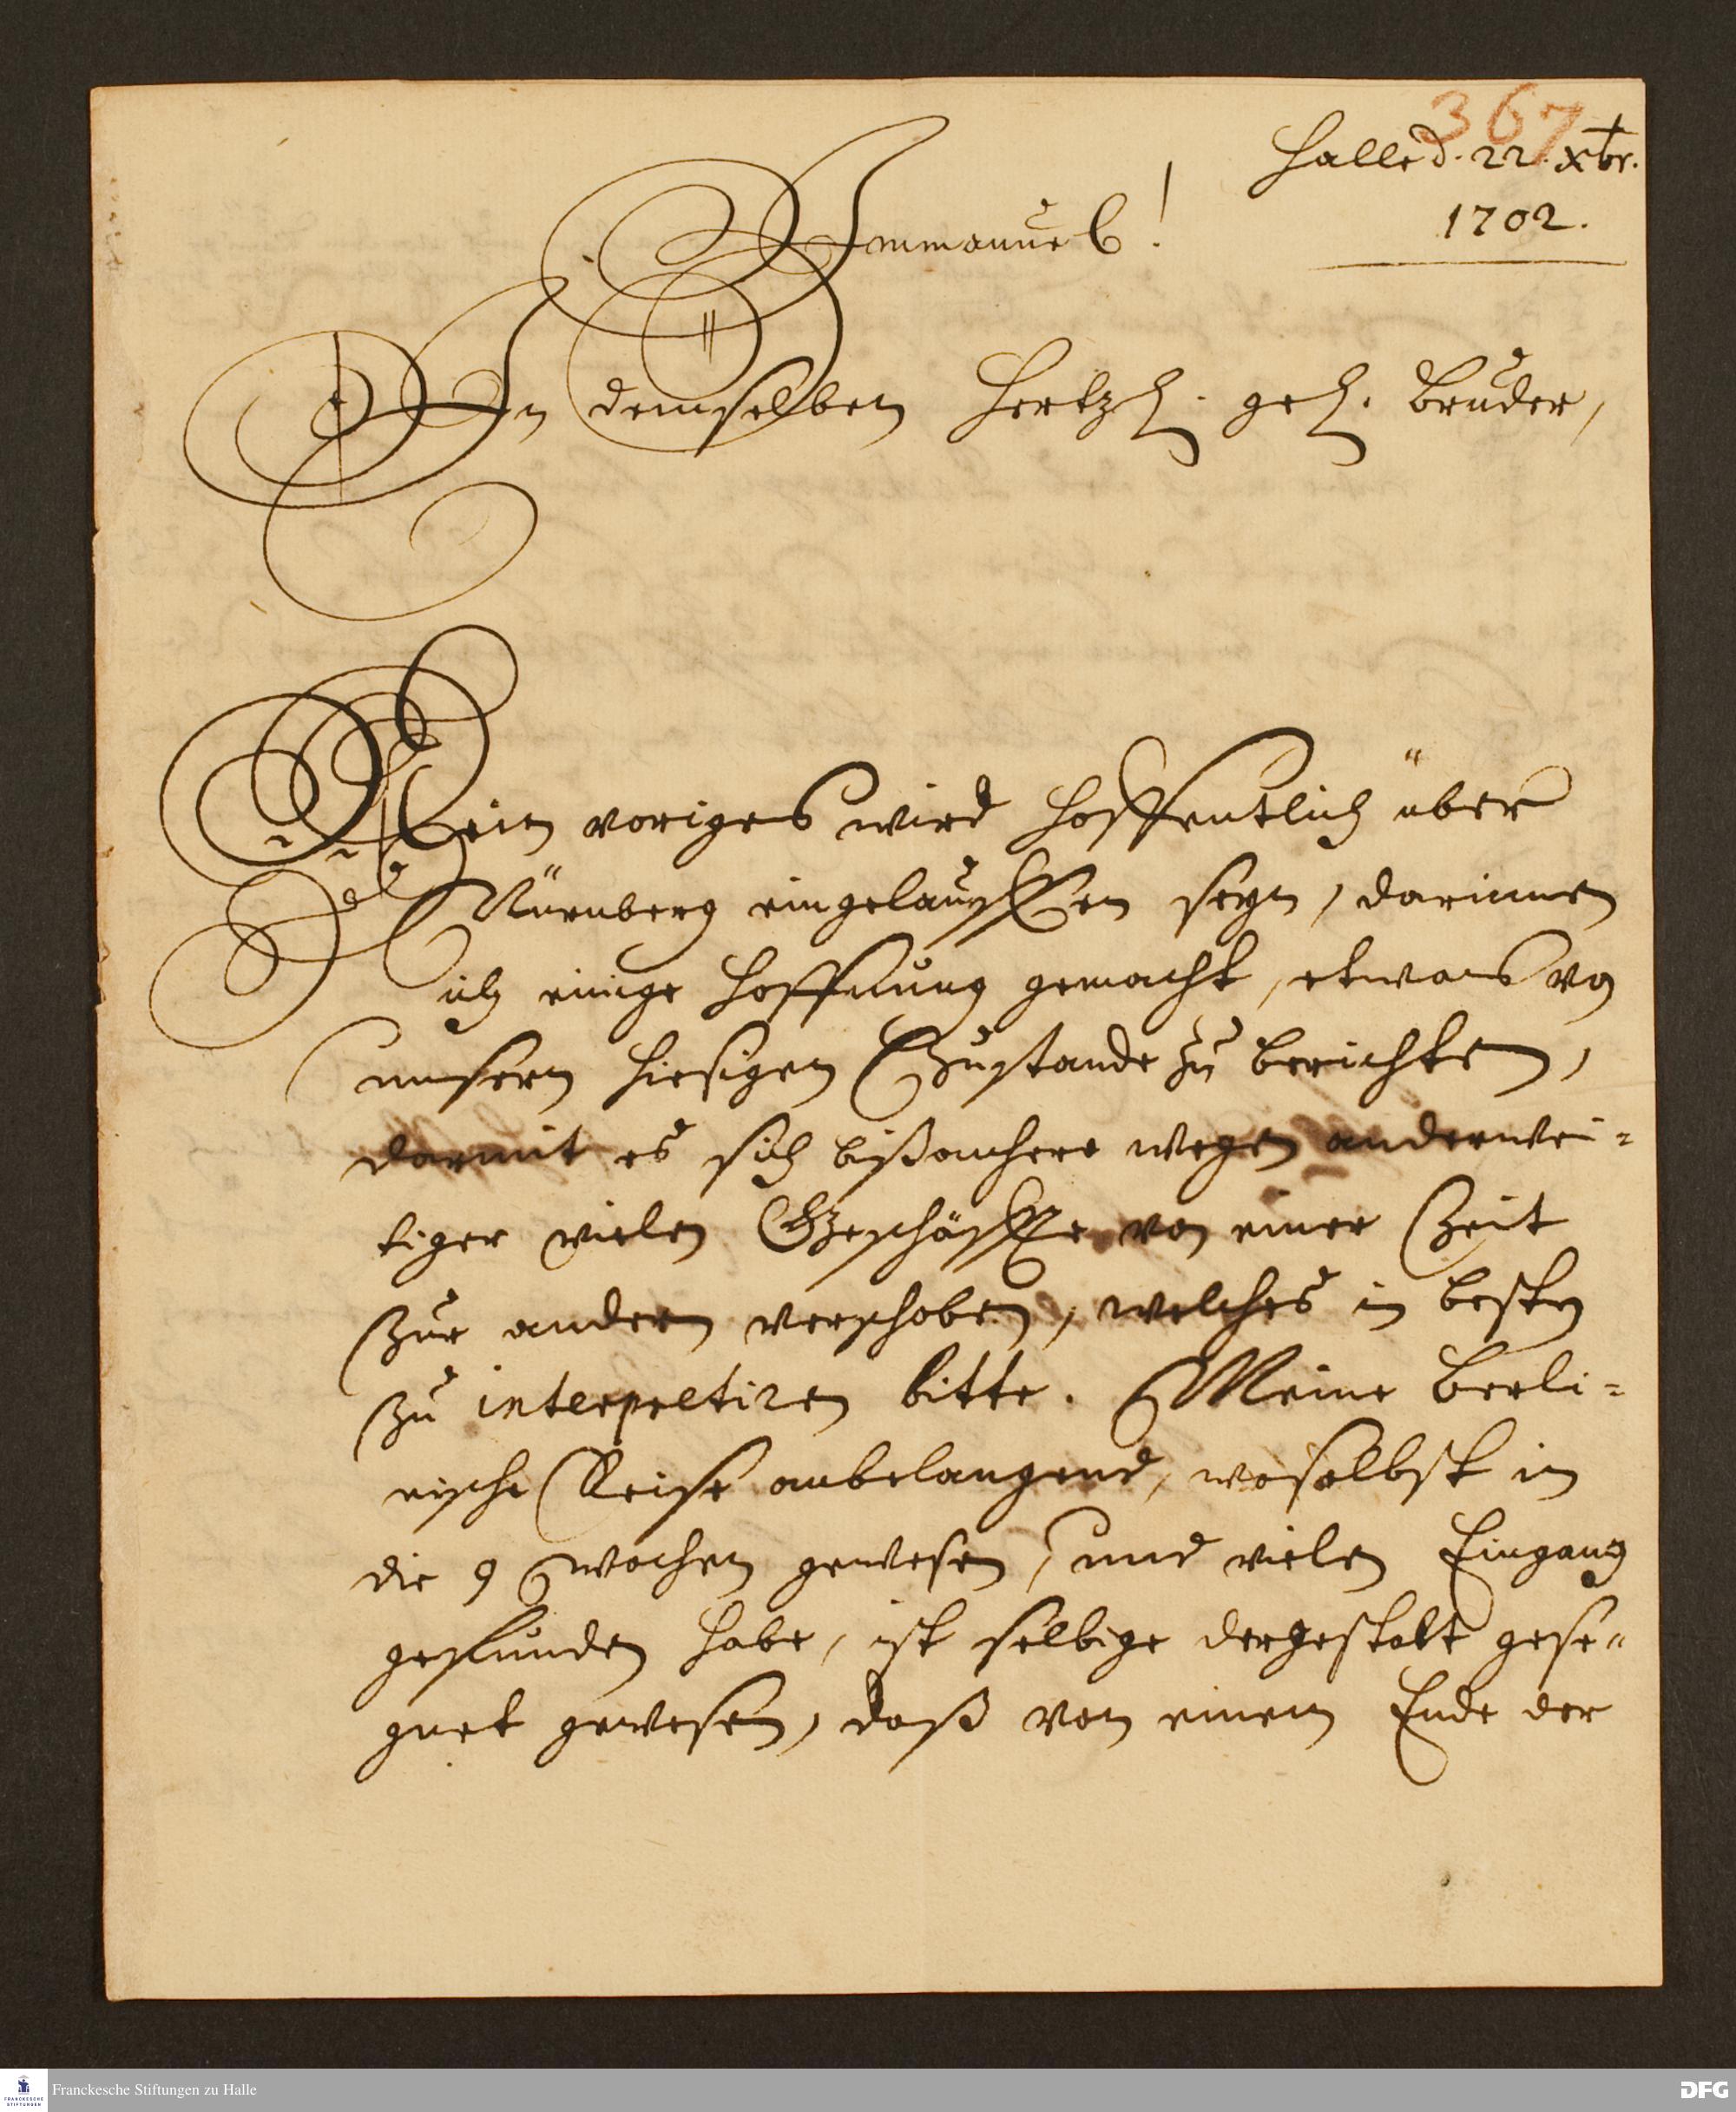 367
Halle d. 22. Xbr.
1702.
Immanuel!
In demselben Hertzl. gel. Bruder,
Mein voriges wird hoffentlich über
Nürnberg eingelauffen seyn, darinnen
ich einige Hoffnung gemacht, etwas vo
unsern hiesigen Zustande zu berichten,
darmit es sich bißanhero wegen anderwei-
tiger vielen Geschäffte von einer Zeit
zur andern verschoben, welches im besten
zu interpretiren bitte. Meine Berli-
nische Reise anbelangend, woselbst in
die 9 Wochen gewesen, und vielen Eingang
gefunden habe, ist selbige dergestalt gese-
gnet gewesen, daß von einem Ende der
Franckesche Stiftungen zu Halle
FRANCKESCHE
STIFTUNGEN
DFG